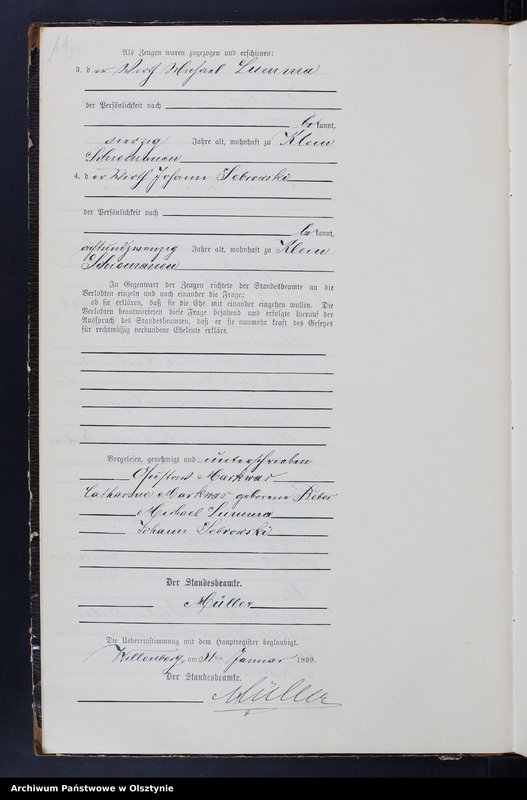 Als Zeugen waren zugezogen und erschienen:
3. der Wirth Michael Lumma
der Persönlichkeit nach
bekannt,
vierzig Jahre alt, wohnhaft zu Klein
Schiemanen
4. der Wirth Johann Sebrowski
der Persönlichkeit nach
bekannt,
achtundzwanzig Jahre alt, wohnhaft zu Klein
Schiemanen
In Gegenwart der Zeugen richtete der Standesbeamte an die
Verlobten einzeln und nach einander die Frage:
ob sie erklären, daß sie die Ehe mit einander eingehen wollen. Die
Verlobten beantworteten diese Frage bejahend und erfolgte hierauf der
Ausspruch des Standesbeamten, daß er sie nunmehr kraft des Gesetzes
für rechtmäßig verbundene Eheleute erkläre.
Vorgelesen, genehmigt und unterschrieben
Gustav Markwas
Catharine Markwas geborene
Michael Lumma
Johann Sebrowski
Der Standesbeamte.
Müller
Die Uebereinstimmung mit dem Hauptregister beglaubigt.
Willenberg, am 31ten Januar 1899.
Der Standesbeamte.
Müller
Archiwum Państwowe w Olsztynie